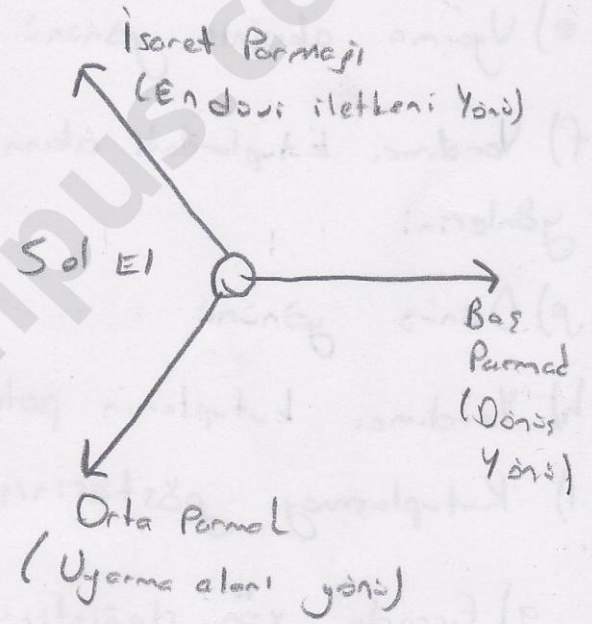 İşaret Parmağı
(Endüvi iletkeni Yönü)
Sol El
Baş
Parmak
(Dönüş
Yönü)
Orta Parmak
(Uyarma alanı yönü)